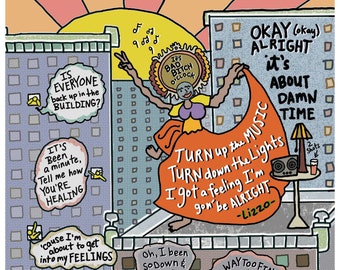 IT'S
BAD
BITCH
O'CLOCK
OKAY (okay)
ALRIGHT
it's
ABOUT
DAMN
TIME
IS
EVERYONE
back up in the
BUILDING?
IT'S
Been
a minute,
Tell me how
YOU'RE
HEALING
'cause I'm
about to get
into my FEELINGS
TURN up the MUSIC
TURN down the Lights
I got a feeling I'm
gon' be ALRIGHT
-Lizzo-
Oh, I been
so Down &
WAY TOO FINE